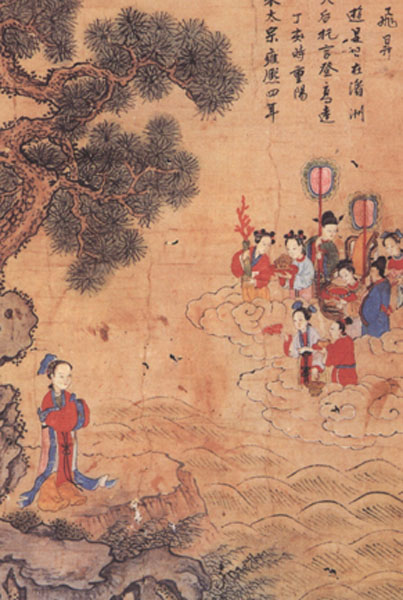 宋太宗雍熙四年
丁亥時重陽
天后托言登高遠
遊是日在湄洲
飛昇